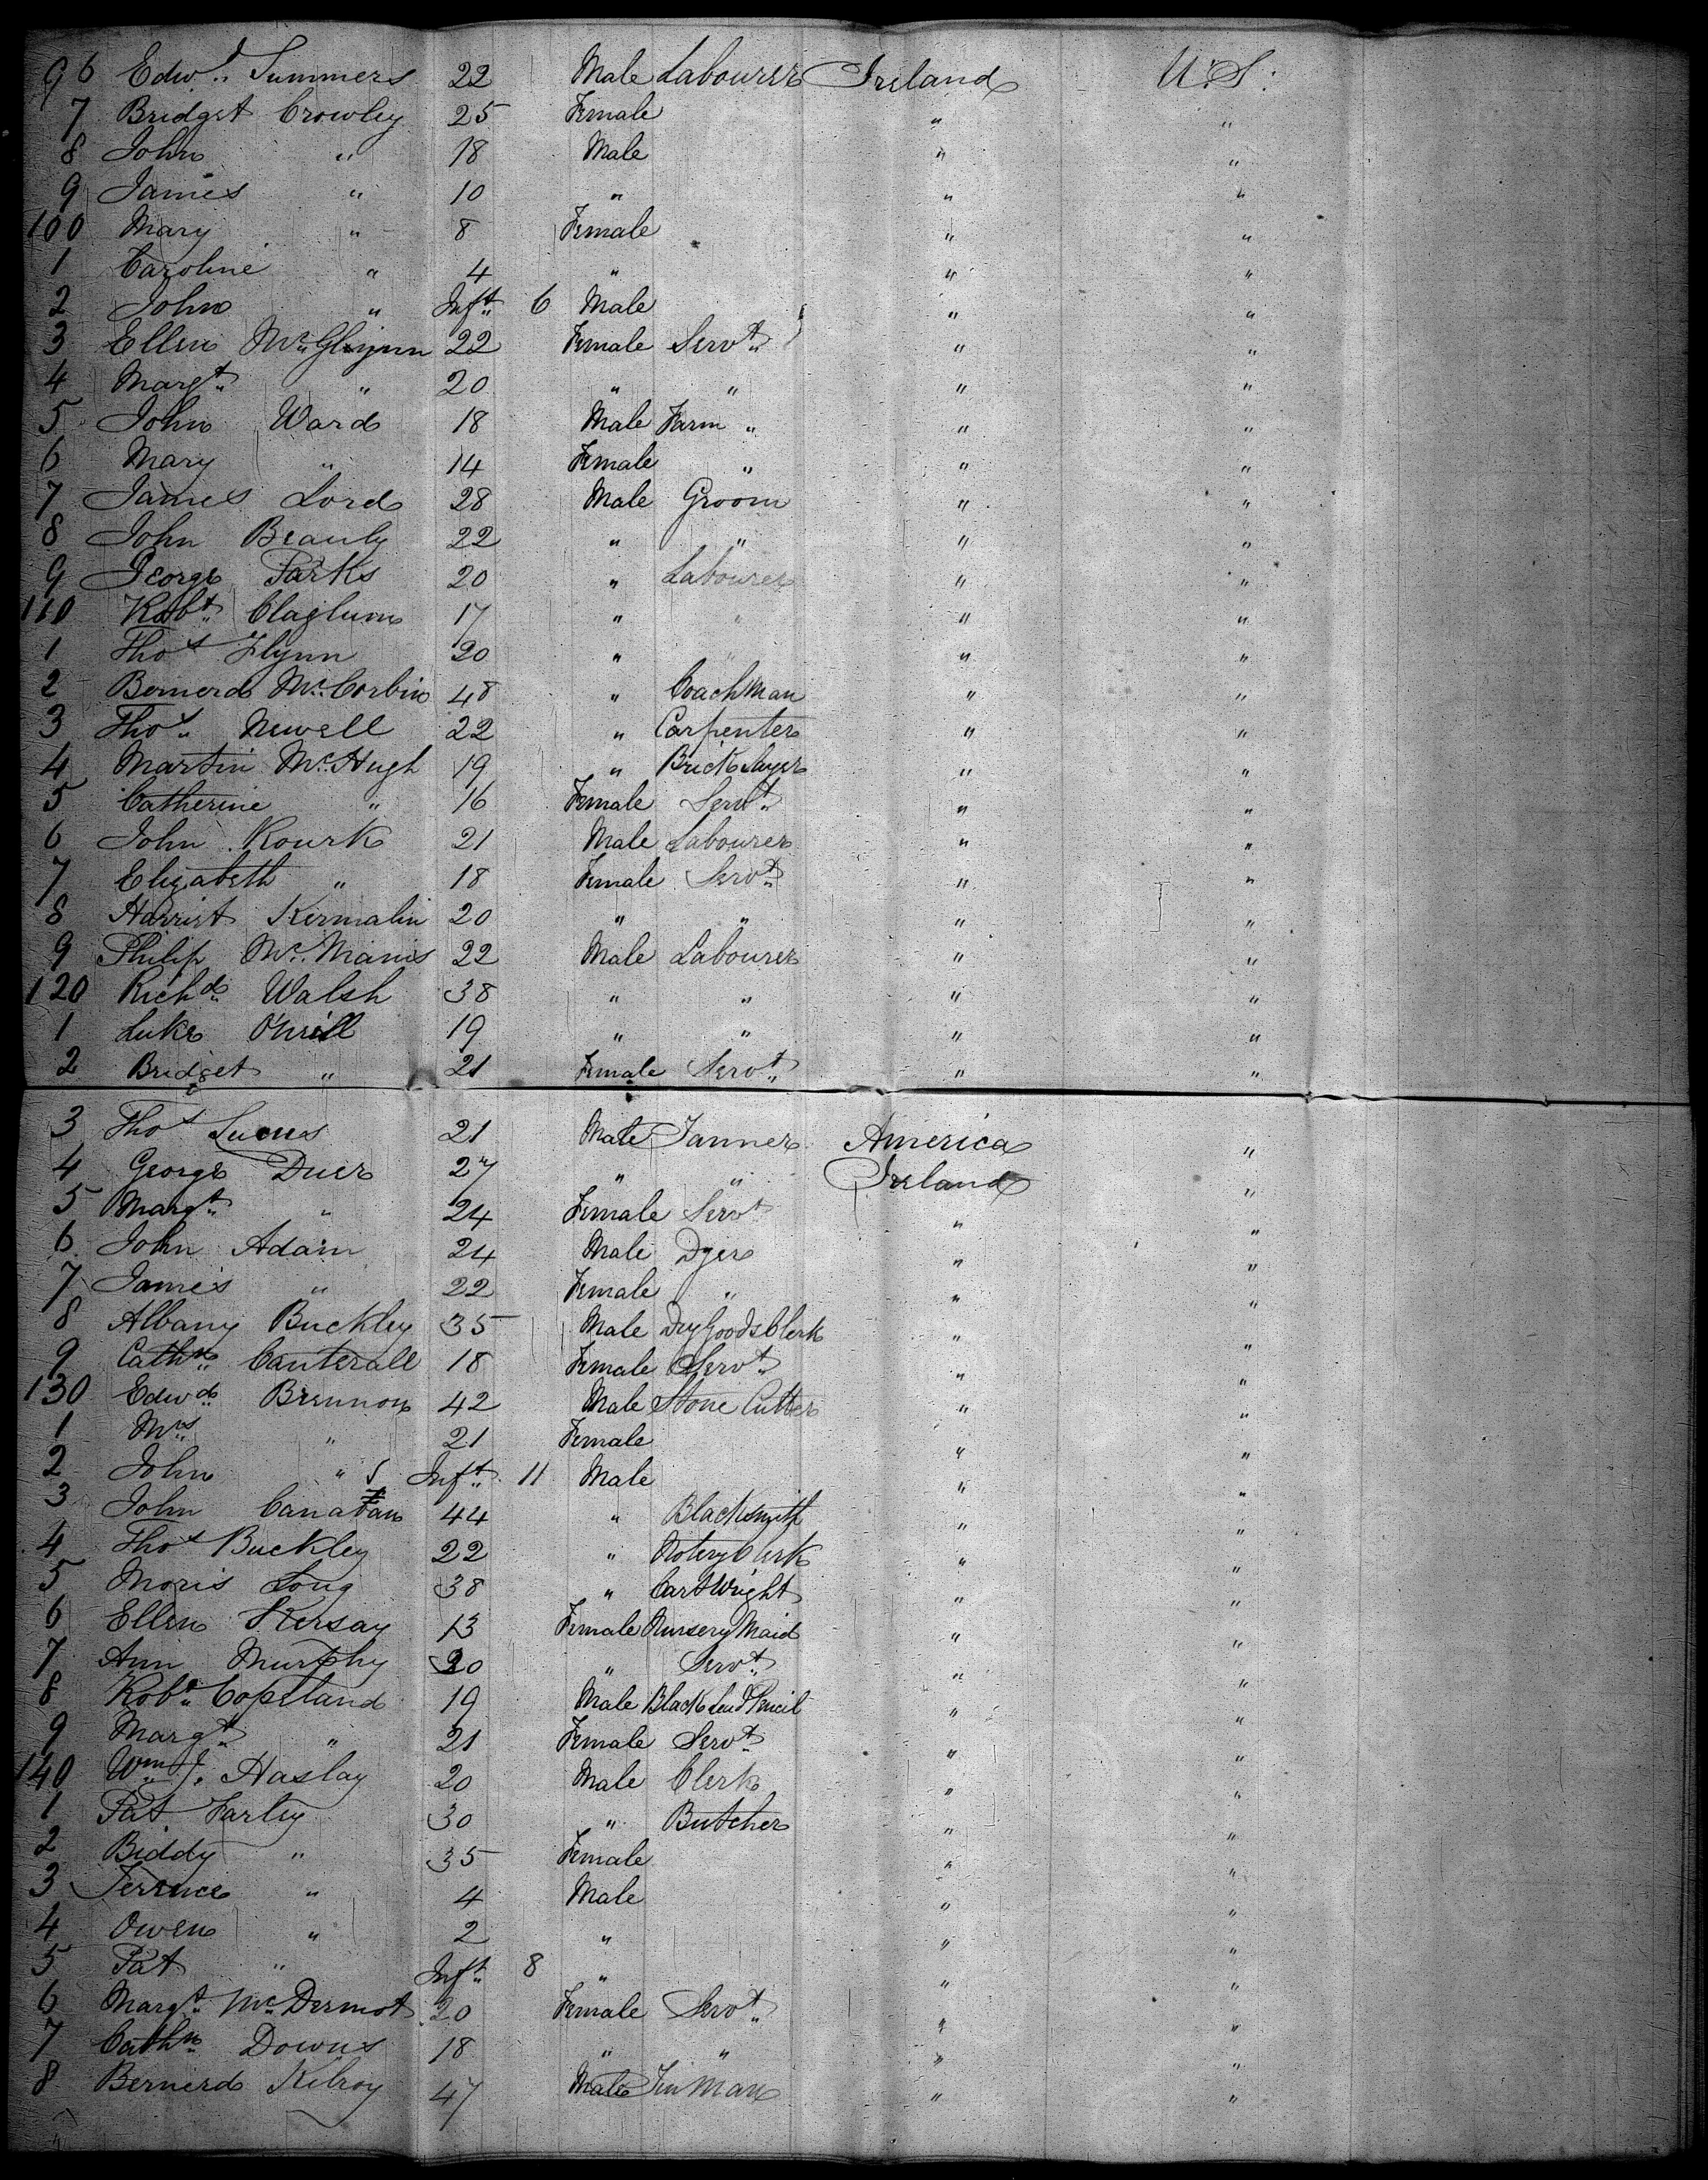 96 Edwd. Summers 22 Male Labourer Ireland U.S:
7 Bridget Crowley 25 Female " "
8 John " 18 Male " "
9 James " 10 " " "
100 Mary " 8 Female " "
1 Caroline " 4 " " "
2 John " Inft. 6 Male " "
3 Ellen McGlynn 22 Female Servt. " "
4 Margt. " 20 " " " "
5 John Ward 18 Male Farm " " "
6 Mary " 14 Female " " "
7 James Lord 28 Male Groom " "
8 John Beauly 22 " " " "
9 George Parks 20 " Labourer " "
110 Robt. 17 " " " "
1 Thos Flynn 20 " " " "
2 Bernerd McCorbin 48 " Coachman " "
3 Thos. Newell 22 " Carpenter " "
4 Martin McHugh 19 " Brick Layer " "
5 Catherine " 16 Female Servt. " "
6 John Rourk 21 Male Labourer " "
7 Elizabeth " 18 Female Servt. " "
8 Harriet Kermalin 20 " " " "
9 Philip Mc.Manis 22 Male Labourer " "
120 Richd. Walsh 38 " " " "
1 Luke O'Neill 19 " " " "
2 Bridget " 21 Female Servt. " "
3 Thos Lucus 21 Male Tanner America "
4 George Duer 27 " " Ireland "
5 Margt. " 24 Female Servt " "
6 John Adam 24 Male Dyer " "
7 James " 22 Female " " "
8 Albany Buckley 35 Male Dry Goods Clerk " "
9 Cathn. Canterall 18 Female Servt. " "
130 Edwd. Brennon 42 Male Stone Cutter " "
1 Mrs. " 21 Female " "
2 John " Inft. 11 Male " "
3 John 44 " Blacksmith " "
4 Thos Buckley 22 " Notery Clerk " "
5 Moris Long 38 " CartWright " "
6 Ellen Kersay 13 Female Nursery Maid " "
7 Ann Murphy 20 " Servt. " "
8 Robt. Copeland 19 Male Black Lead Pencil " "
9 Margt. " 21 Female Servt. " "
140 Wm. J. Haslay 20 Male Clerk " "
1 Pat Farley 30 " Butcher " "
2 Biddy " 35 Female " "
3 Terrence " 4 Male " "
4 Owen " 2 " " "
5 Pat " Inft. 8 " " "
6 Margt. McDermot 20 Female Servt. " "
7 Cathn. Downs 18 " " " "
8 Bernerd Kilroy 47 Male Tin Man " "